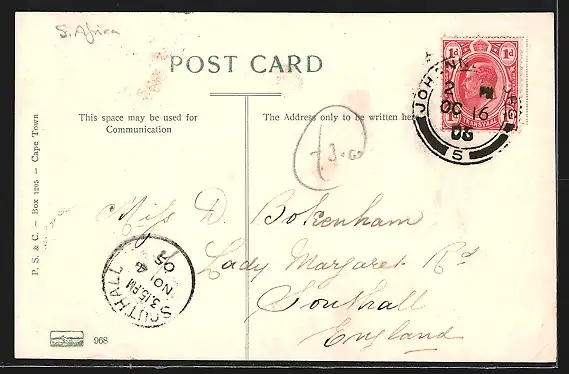 S. Africa
POST CARD
This space may be used for
Communication
The Address only to be written her
1d 1d
JOHANN RG
OC 16
06
5
Miss D. Bokenham
Lady Margaret Rd
Southall
England
SOUTHALL
3.15.PM
NO 4
05
P. S. & C. – Box 1205 – Cape Town
968